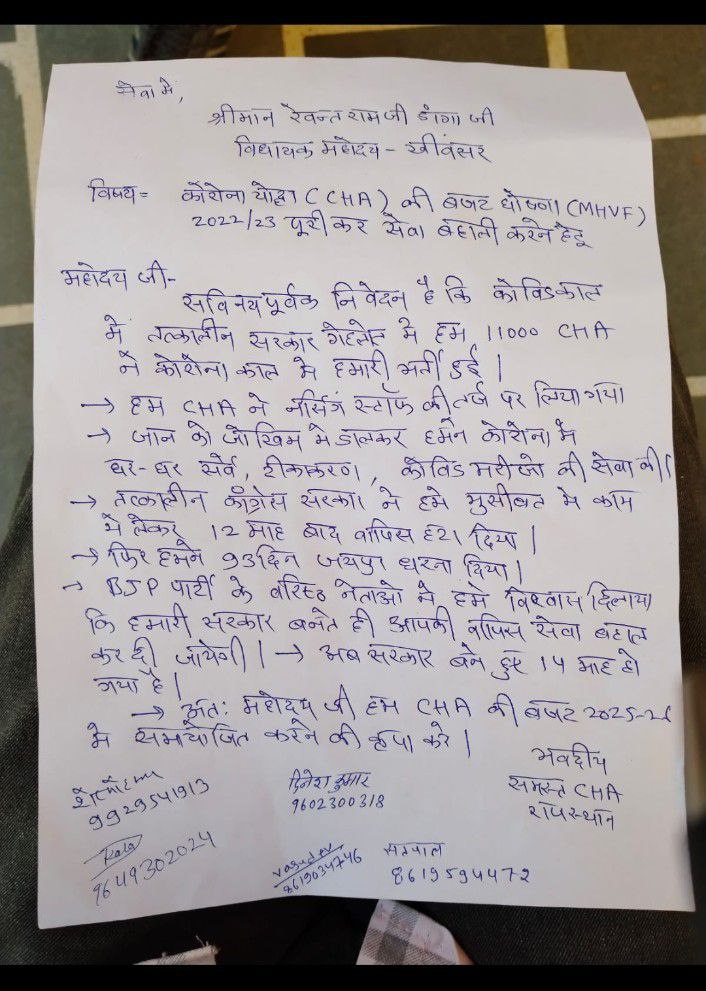 सेवा मे,
श्रीमान रेवन्तरामजी डांगा जी
विधायक महोदय - खींवसर
विषय = कोरोना योद्धा (CHA) की बजट घोषणा (MHVF)
2022/23 पूरी कर सेवा बहाली करने हेतू
महोदय जी-
सविनय पूर्वक निवेदन है कि कोविडकाल
में तत्कालीन सरकार गेहलोत मे हम 11000 CHA
ने कोरोना काल मे हमारी भर्ती हुई |
→ हम CHA ने नर्सिंग स्टॉफ की तर्ज पर लिया गया
→ जान को जोखिम मे डालकर हमने कोरोना मे
घर-घर सर्वे, टीकाकरण, कोविड मरीजो की सेवा की |
→ तत्कालीन कांग्रेस सरकार ने हमे मुसीबत मे काम
मे लेकर 12 माह बाद वापिस हटा दिया |
→ फिर हमने 93दिन जयपुर धरना दिया |
→ BJP पार्टी के वरिष्ठ नेताओ ने हमे विश्वास दिलाया
कि हमारी सरकार बनते ही आपकी वापिस सेवा बहाल
कर दी जायेगी | → अब सरकार बने हुए 14 माह हो
गया है |
→ अंत: महोदय जी हम CHA की बजट 2025-26
मे समायोजित करने की कृपा करे |
भवदीय
समस्त CHA
राजस्थान
9929541913
दिनेश कुमार
9602300318
9649302024
vasudev
8619034746
सतपाल
8619594472